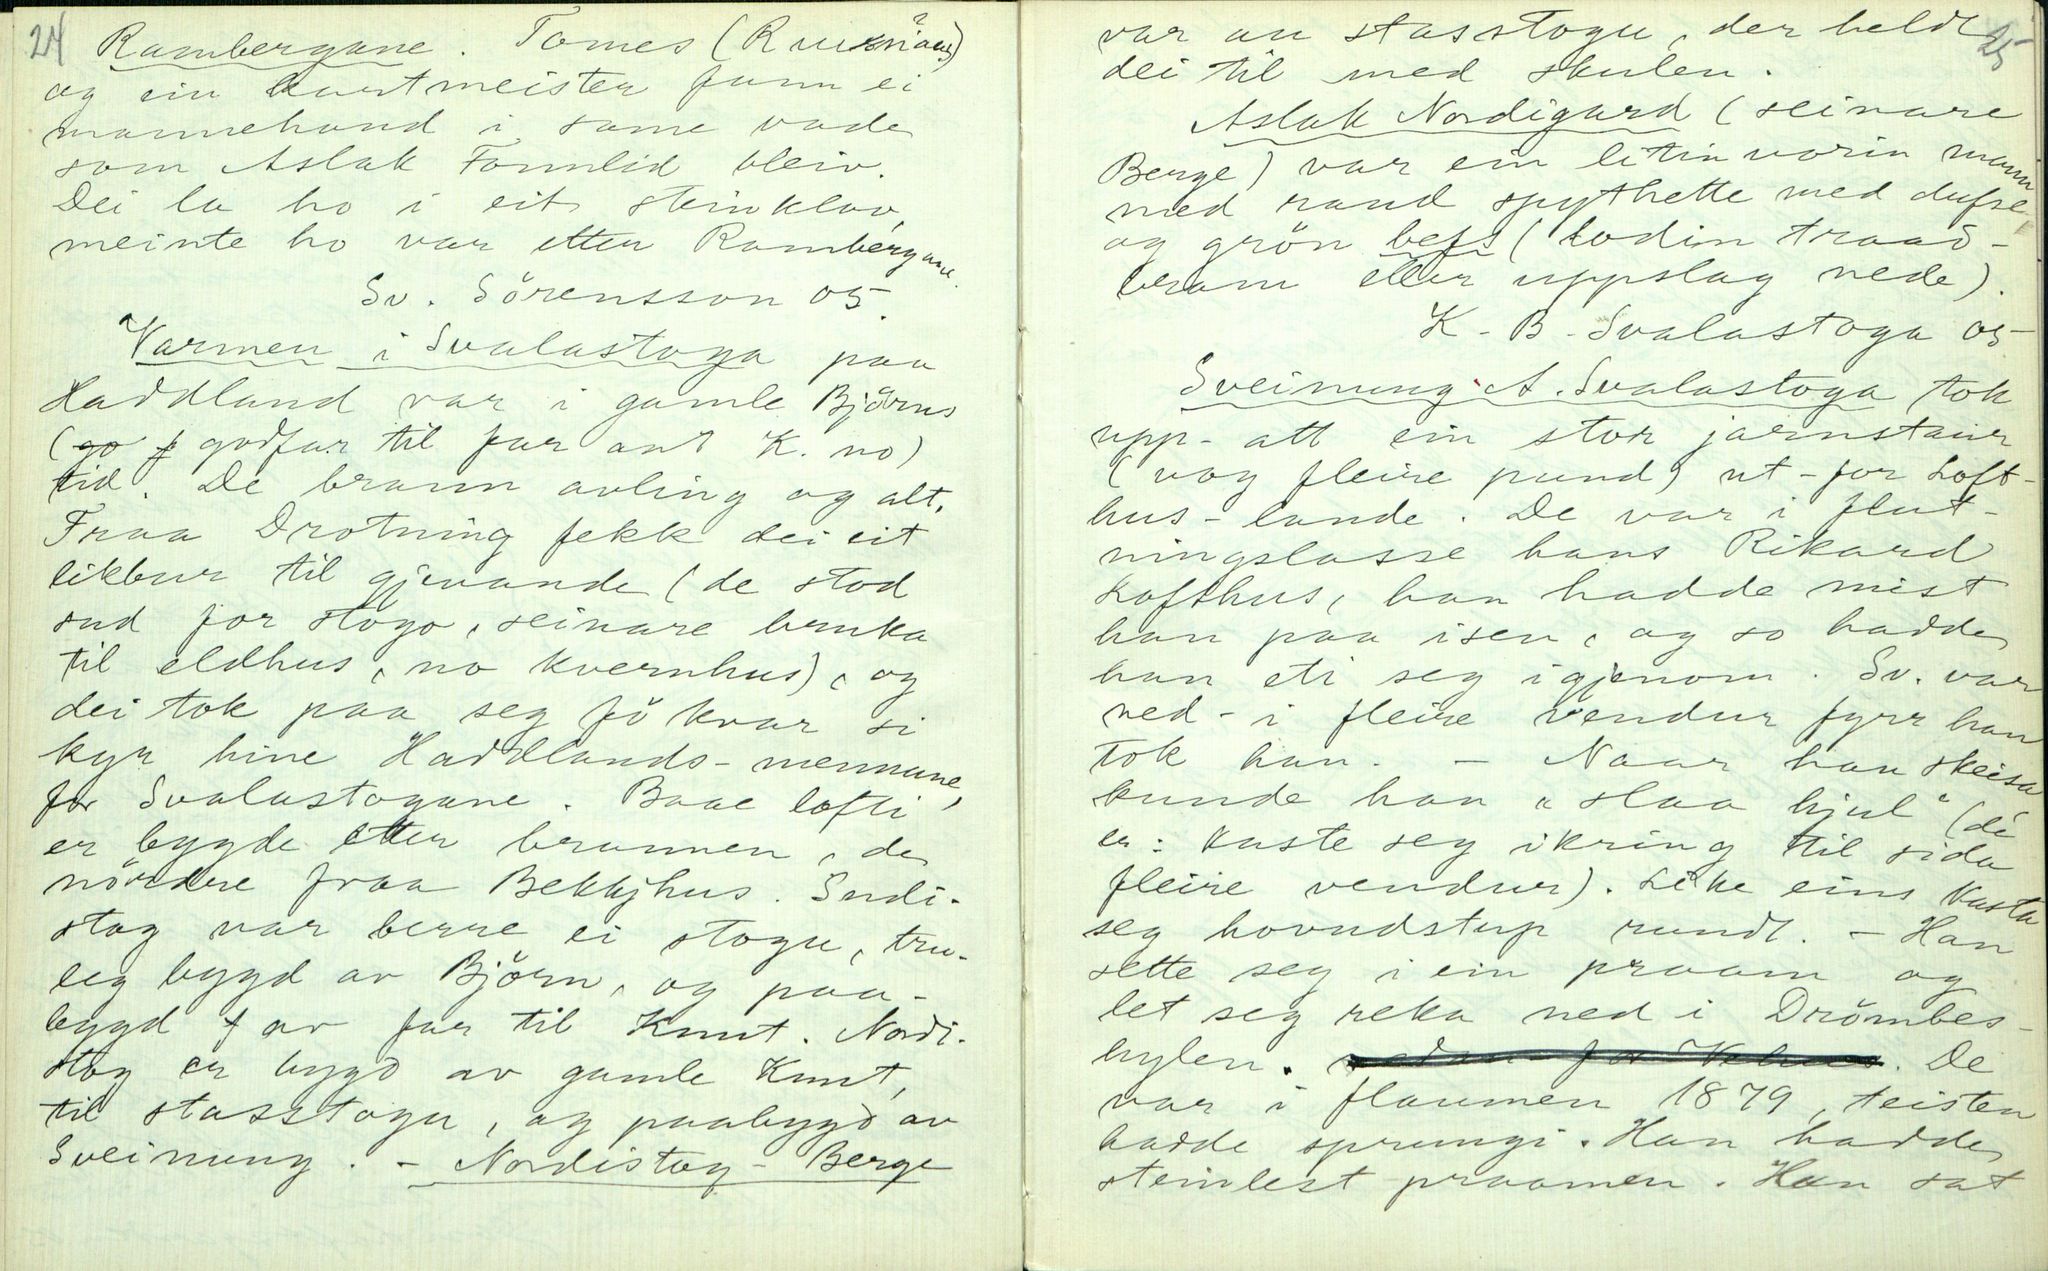 24
Rambergane. Tomes (
og ein kvartmeister fann ei
mannehand i same vade
som Aslak Fonnlid bleiv.
Dei la ho i eit steinklov,
meinte ho var etter Rambergane.
Sv. Sörensson 05.
Varmen i Svalastoga paa
Haddland var i gamle Björns
(go f godfar til far aat K. no)
tid. De brann avling og alt.
Fraa Drotning fekk dei eit
likbur til gjevande (de stod
sud for stogo, seinare bruka
til eldhus, no kvernhus), og
dei tok paa seg fö kvar si
kyr hine Haddlands-mennane,
for Svalastogane. Baae lofti
er bygde etter brannen, de
nördre fraa Bekkjhus. Sudi-
stog var berre ei stogu, tru-
leg bygd av Björn, og paa-
bygd f av far til Knut. Nordi-
stog er bygd av gamle Knut,
til stasstogu, og paabygd av
Sveinung. - Nordistog - Berge
25
var au stasstogu, der heldt
dei til med skulen.
Aslak Nordigard (seinare
Berge) var ein litin vorin mann
med raud spythette med dufse
og grön befs (lodin traad-
bram eller uppslag nede).
K. B. Svalastoga 05
Sveinung A. Svalastoga tok
upp-att ein stor jarnstaur
(vog fleire pund) ut-for Loft-
hus-lande. De var i flut-
ningslasse hans Rikard
Lofthus, han hadde mist
han paa isen, og so hadde
han eti seg igjenom. Sv. var
ned-i fleire vendur fyrr han
tok han. - Naar han skeisa
kunde han "slaa hjul" (dé
er: kaste seg ikring til sida
fleire vendur). Like eins kasta
seg hovudstup rundt. - Han
sette seg i ein praam og
let seg reka ned i Drömbes-
hylen. De
var i flaumen 1879, teisten
hadde sprungi. Han hadde
steinlest praamen. Han sat